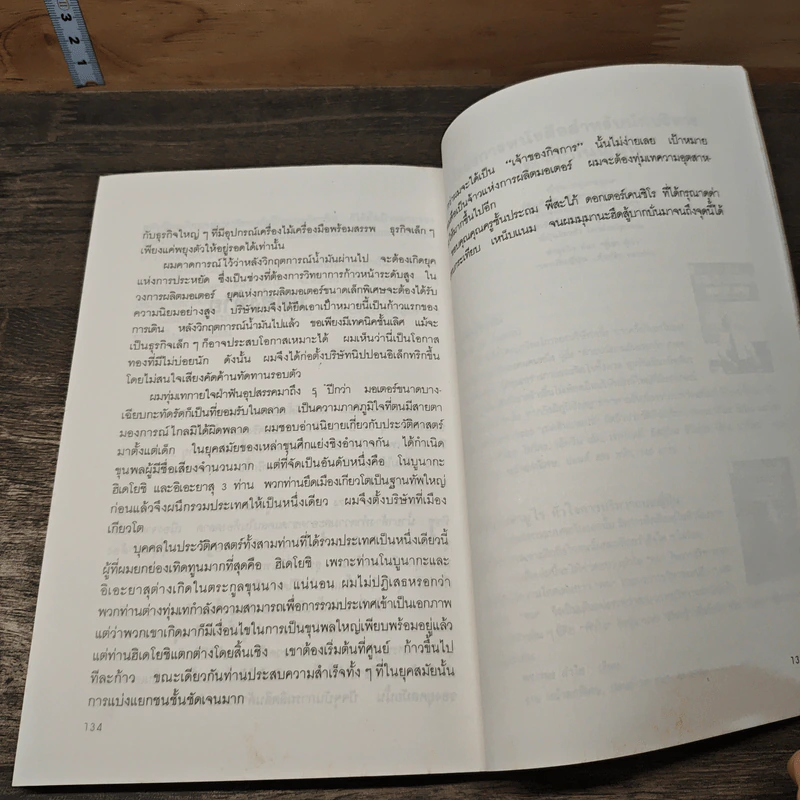 3
2
1
กับธุรกิจใหญ่ ๆ ที่มีอุปกรณ์เครื่องไม้เครื่องมือพร้อมสรรพ ธุรกิจเล็ก ๆ
เพียงแค่พยุงตัวให้อยู่รอดได้เท่านั้น
ผมคาดการณ์ไว้ว่าหลังวิกฤตการณ์น้ำมันผ่านไป จะต้องเกิดยุค
แห่งการประหยัด ซึ่งเป็นช่วงที่ต้องการวิทยาการก้าวหน้าระดับสูง ใน
วงการผลิตมอเตอร์ ยุคแห่งการผลิตมอเตอร์ขนาดเล็กพิเศษจะต้องได้รับ
ความนิยมอย่างสูง บริษัทผมจึงได้ยึดเอาเป้าหมายนี้เป็นก้าวแรกของ
การเดิน หลังวิกฤตการณ์น้ำมันไปแล้ว ขอเพียงมีเทคนิคชั้นเลิศ แม้จะ
เป็นธุรกิจเล็ก ๆ ก็อาจประสบโอกาสเหมาะได้ ผมเห็นว่านี่เป็นโอกาส
ทองที่มีไม่บ่อยนัก ดังนั้น ผมจึงได้ก่อตั้งบริษัทนิปปอนอิเล็กทริกขึ้น
โดยไม่สนใจเสียงคัดค้านทัดทานรอบตัว
ผมทุ่มเทกายใจฝ่าฟันอุปสรรคมาถึง 5 ปีกว่า มอเตอร์ขนาดบาง-
เฉียบกะทัดรัดก็เป็นที่ยอมรับในตลาด เป็นความภาคภูมิใจที่ตนมีสายตา
มองการณ์ไกลมิได้ผิดพลาด ผมชอบอ่านนิยายเกี่ยวกับประวัติศาสตร์
มาตั้งแต่เด็ก ในยุคสมัยของเหล่าขุนศึกแย่งชิงอำนาจกัน ได้กำเนิด
ขุนพลผู้มีชื่อเสียงจำนวนมาก แต่ที่จัดเป็นอันดับหนึ่งคือ โนบุนากะ
ฮิเดโยชิ และอิเอะยาสุ 3 ท่าน พวกท่านยึดเมืองเกียวโตเป็นฐานทัพใหญ่
ก่อนแล้วจึงผนึกรวมประเทศให้เป็นหนึ่งเดียว ผมจึงตั้งบริษัทที่เมือง
เกียวโต
บุคคลในประวัติศาสตร์ทั้งสามท่านที่ได้รวมประเทศเป็นหนึ่งเดียวนี้
ผู้ที่ผมยกย่องเทิดทูนมากที่สุดคือ ฮิเดโยชิ เพราะท่านโนบุนากะและ
อิเอะยาสุต่างเกิดในตระกูลขุนนาง แน่นอน ผมไม่ปฏิเสธหรอกว่า
พวกท่านต่างทุ่มเทกำลังความสามารถเพื่อการรวมประเทศเข้าเป็นเอกภาพ
แต่ว่าพวกเขาเกิดมาก็มีเงื่อนไขในการเป็นขุนพลใหญ่เพียบพร้อมอยู่แล้ว
แต่ท่านฮิเดโยชิแตกต่างโดยสิ้นเชิง เขาต้องเริ่มต้นที่ศูนย์ ก้าวขึ้นไป
ทีละก้าว ขณะเดียวกันท่านประสบความสำเร็จทั้ง ๆ ที่ในยุคสมัยนั้น
การแบ่งแยกชนชั้นชัดเจนมาก
134
จะได้เป็น "เจ้าของกิจการ" นั้นไม่ง่ายเลย เป้าหมาย
เป็นจ้าวแห่งการผลิตมอเตอร์ ผมจะต้องทุ่มเทความอุตสาห-
มากขึ้นไปอีก
คุณครูชั้นประถม พี่สะใภ้ ดอกเตอร์เคนซิโร ที่ได้กรุณาด่า
กระเทียบ เหน็บแนม จนผมมุมานะฮึดสู้บากบั่นมาจนถึงจุดนี้ได้
13